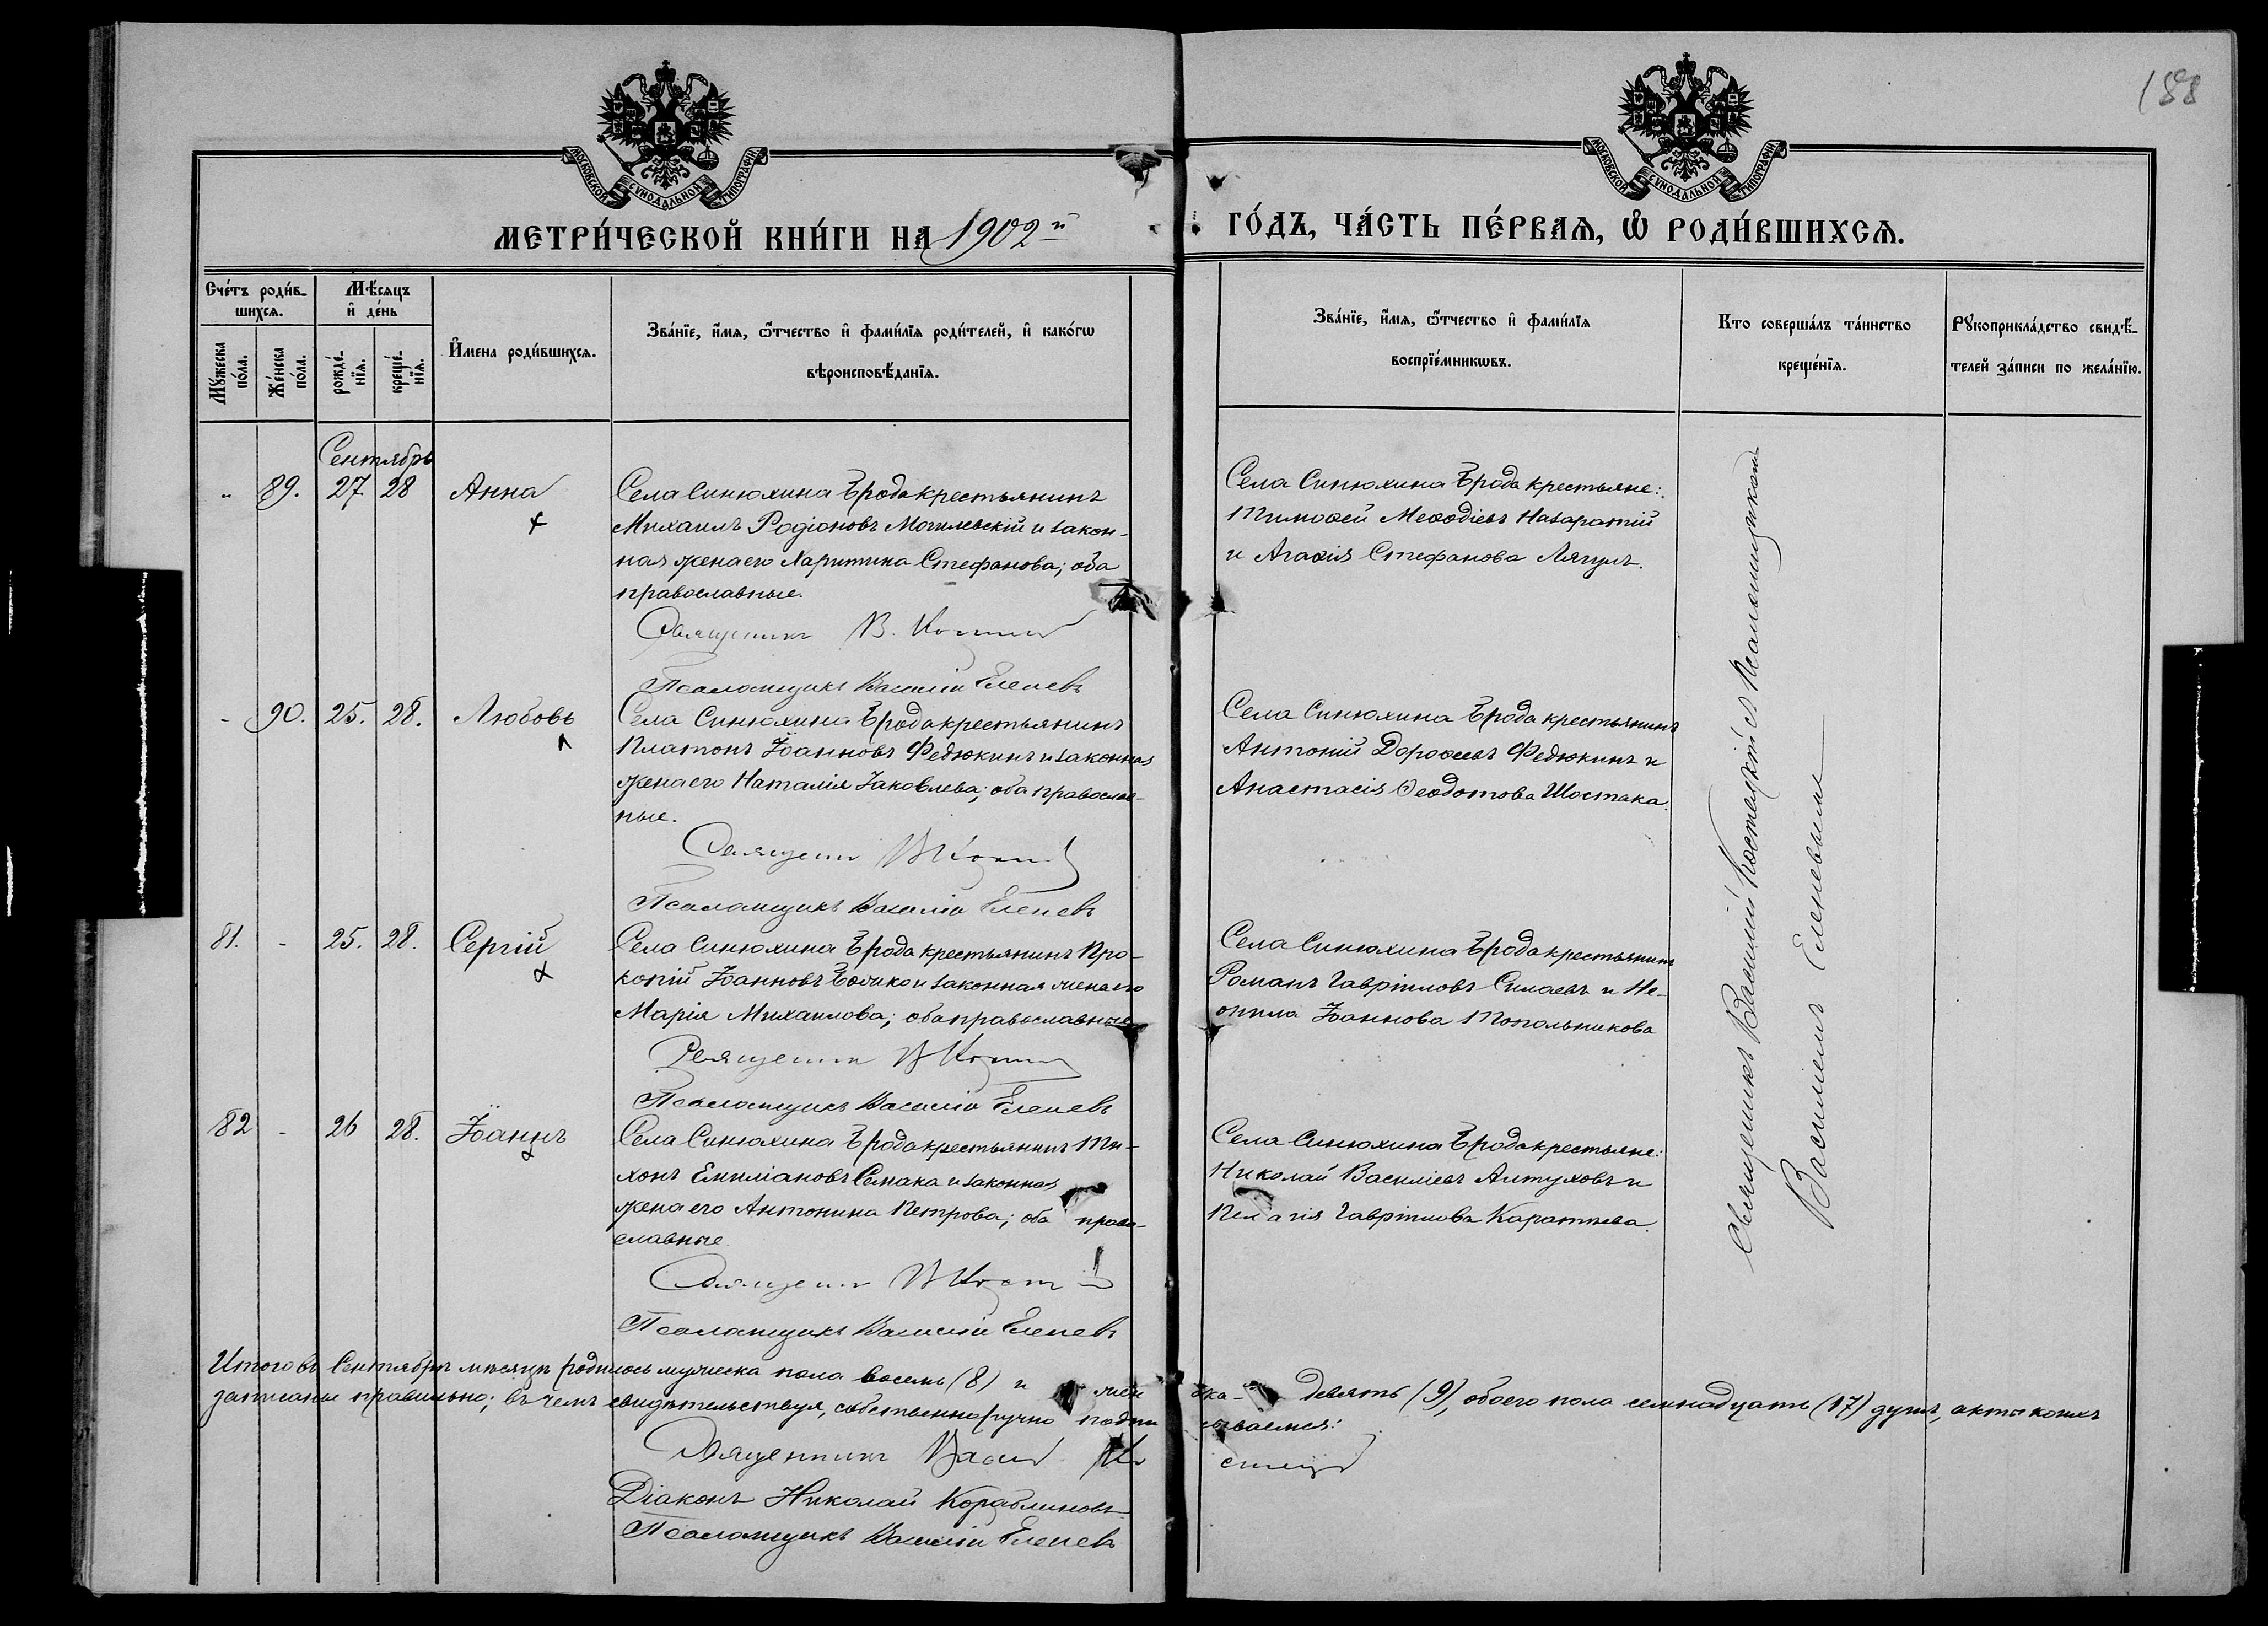 188
МОСКОВСКОЙ СѴНОДАЛЬНОЙ ТИПОГРАФІИ
МОСКОВСКОЙ СѴНОДАЛЬНОЙ ТИПОГРАФІИ
МЕТРИ́ЧЕСКОЙ КНИ́ГИ НА 1902й ГО́ДЪ, ЧА́СТЬ ПЕ́РВАѦ, Ѡ РОДИ́ВШИХСѦ.
Сче́тъ роди́в-
шихсѧ.
Мѣ́сѧцъ
и де́нь
Мꙋ́жеска по́ла.
Же́нска по́ла.
рожде́-нїѧ.
креще́-нїѧ.
И҆мена роди́вшихсѧ.
Зва́нїе, и҆́мѧ, ѻ҆́тчество и҆ фами́лїѧ роди́телей, и҆ како́гѡ
вѣроисповѣ́данїѧ.
Зва́нїе, и҆́мѧ, ѻ҆́тчество и҆ фами́лїѧ
воспрїе́мникѡвъ.
Кто соверша́лъ та́инство
креще́нїѧ.
Рꙋкоприкла́дство свидѣ́-
телей за́писи по жела́нїю.
Сентябрь
" 89. 27 28 Анна
Села Синюхина Брода крестьянинъ
Михаилъ Родіоновъ Могилевскій и закон-
ная жена его Харитина Стефанова; оба
православные.
Священникъ В.
Псаломщикъ Василій Еленевъ
Села Синюхина Брода крестьяне:
Тимоѳей Меѳодіевъ Назаратій
и Агаѳія Стефанова Лягулъ.
- 90. 25. 28. Любовь
Села Синюхина Брода крестьянинъ
Платонъ Іоанновъ Федюкинъ и законная
жена его Наталія Іаковлева; оба православ-
ные.
Священникъ В
Псаломщикъ Василій Еленевъ
Села Синюхина Брода крестьянинъ
Антоній Дороѳеевъ Федюкинъ и
Анастасія Ѳеодотова Шостака.
81. - 25. 28. Сергій
Села Синюхина Брода крестьянинъ Про-
копій Іоанновъ и законная жена его
Марія Михаилова; оба православные
Священникъ В
Псаломщикъ Василій Еленевъ
Села Синюхина Брода крестьянинъ
Романъ Гавріиловъ Силаевъ и Не-
онила Іоаннова Топольникова
82 - 26 28. Іоаннъ
Села Синюхина Брода крестьянинъ Ти-
хонъ Емиліановъ Семака и законная
жена его Антонина Петрова; оба право-
славные
Священникъ В
Псаломщикъ Василій Еленевъ
Села Синюхина Брода крестьяне:
Николай Василіевъ Алтуховъ и
Пелагія Гавріилова Каратѣева.
Священникъ Василій Костецкій съ Псаломщикомъ
Василіемъ Еленевымъ
Итого въ Сентябрѣ мѣсяцѣ родилось мужеска пола восемь (8) и женска- девять (9), обоего пола семнадцать (17) душъ, акта коихъ
записаны правильно; въ чемъ свидѣтельствуя, собственноручно подписываемся:
Священникъ Василій Костецкій
Діаконъ Николай Кораблиновъ
Псаломщикъ Василій Еленевъ